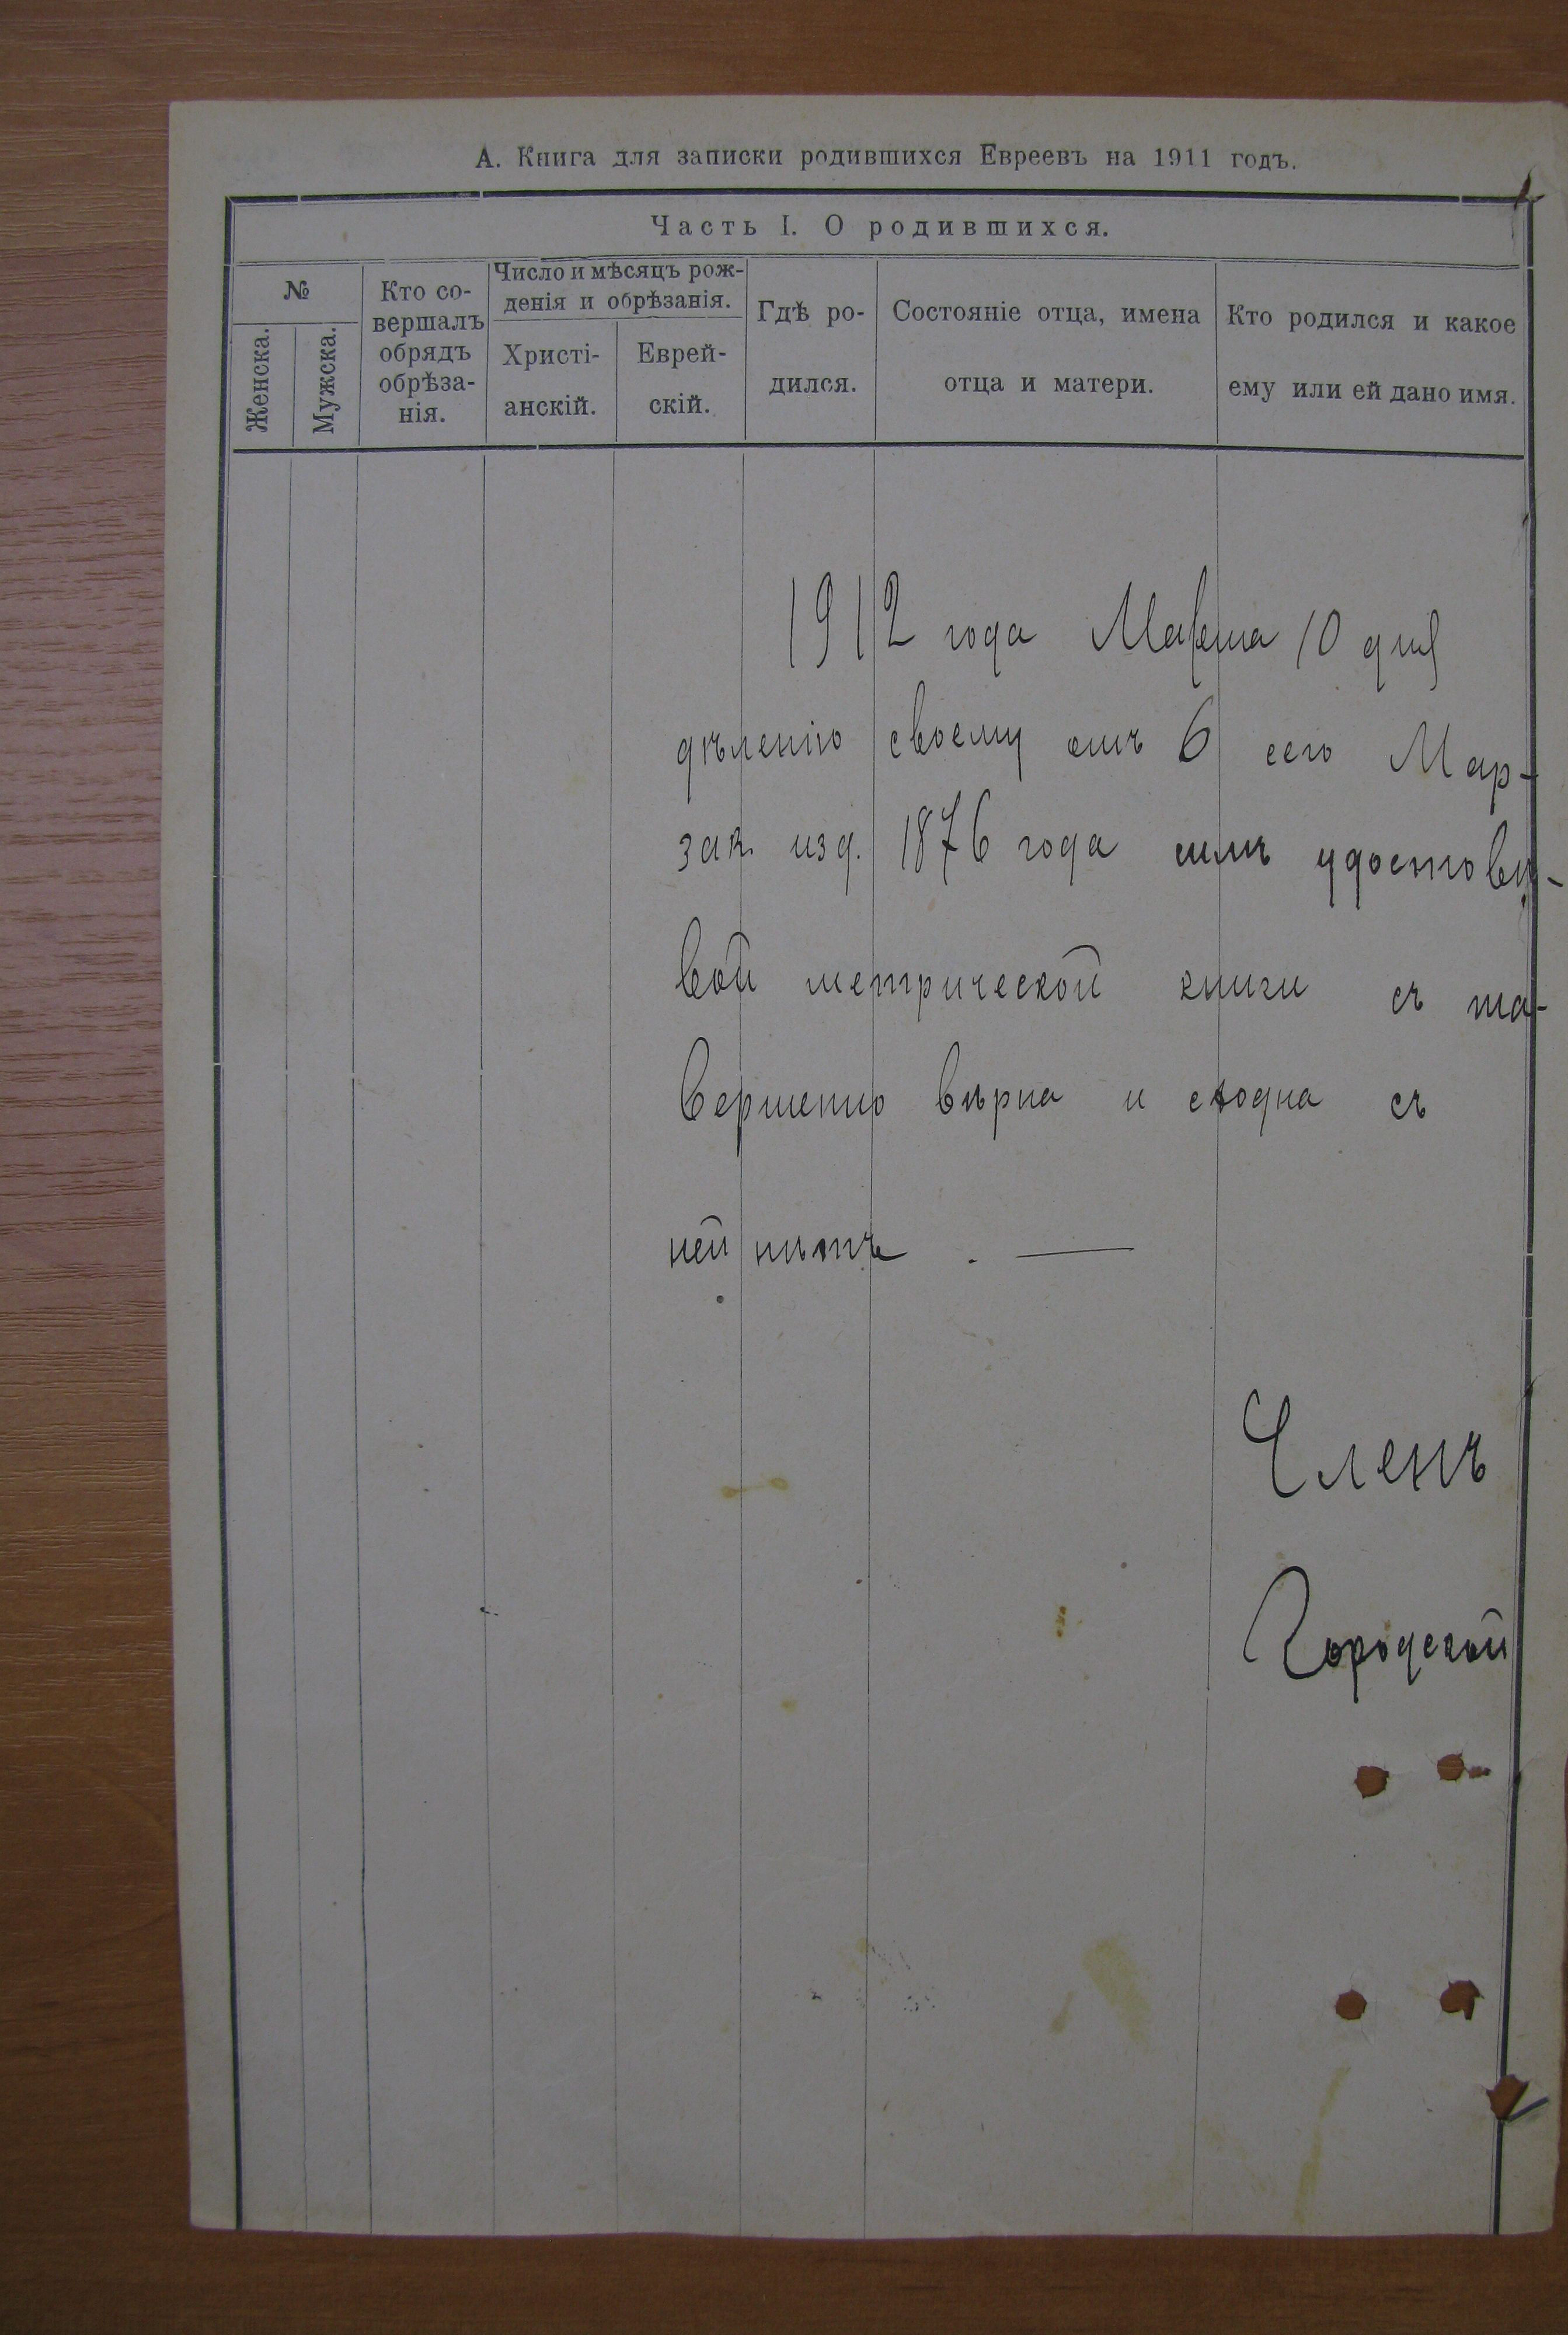 А. Книга для записки родившихся Евреевъ на 1911 годъ.
Часть I. О родившихся.
№
Женска.
Мужска.
Кто со-
вершалъ
обрядъ
обрѣза-
нія.
Число и мѣсяцъ рож-
денія и обрѣзанія.
Христі-
анскій.
Еврей-
скій.
Гдѣ ро-
дился.
Состояніе отца, имена
отца и матери.
Кто родился и какое
ему или ей дано имя.
1912 года Марта 10 дня
дѣленію своему отъ 6 сего Мар-
зак. изд. 1876 года симъ удостовѣ-
вой метрической книги съ та-
вершенно вѣрна и сходна съ
ней нѣтъ. —
Членъ
Городской